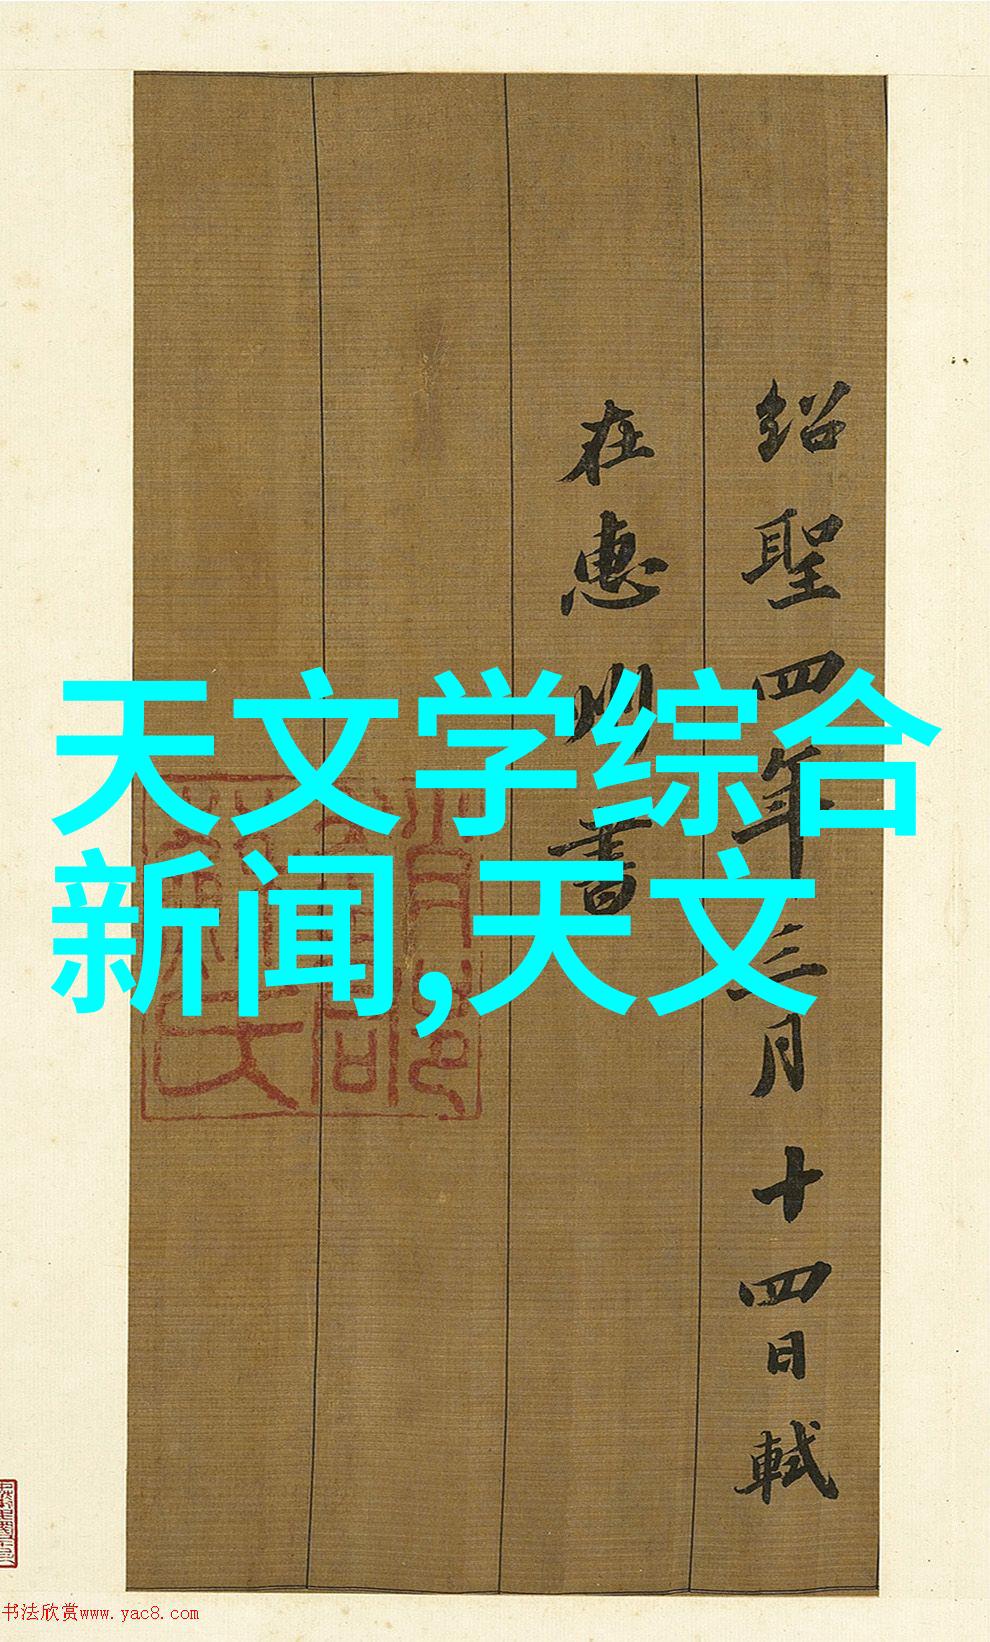 天文学综合
新闻,天文
紹聖四年三月十四日軾
在惠州書
书法欣赏www.yac8.com